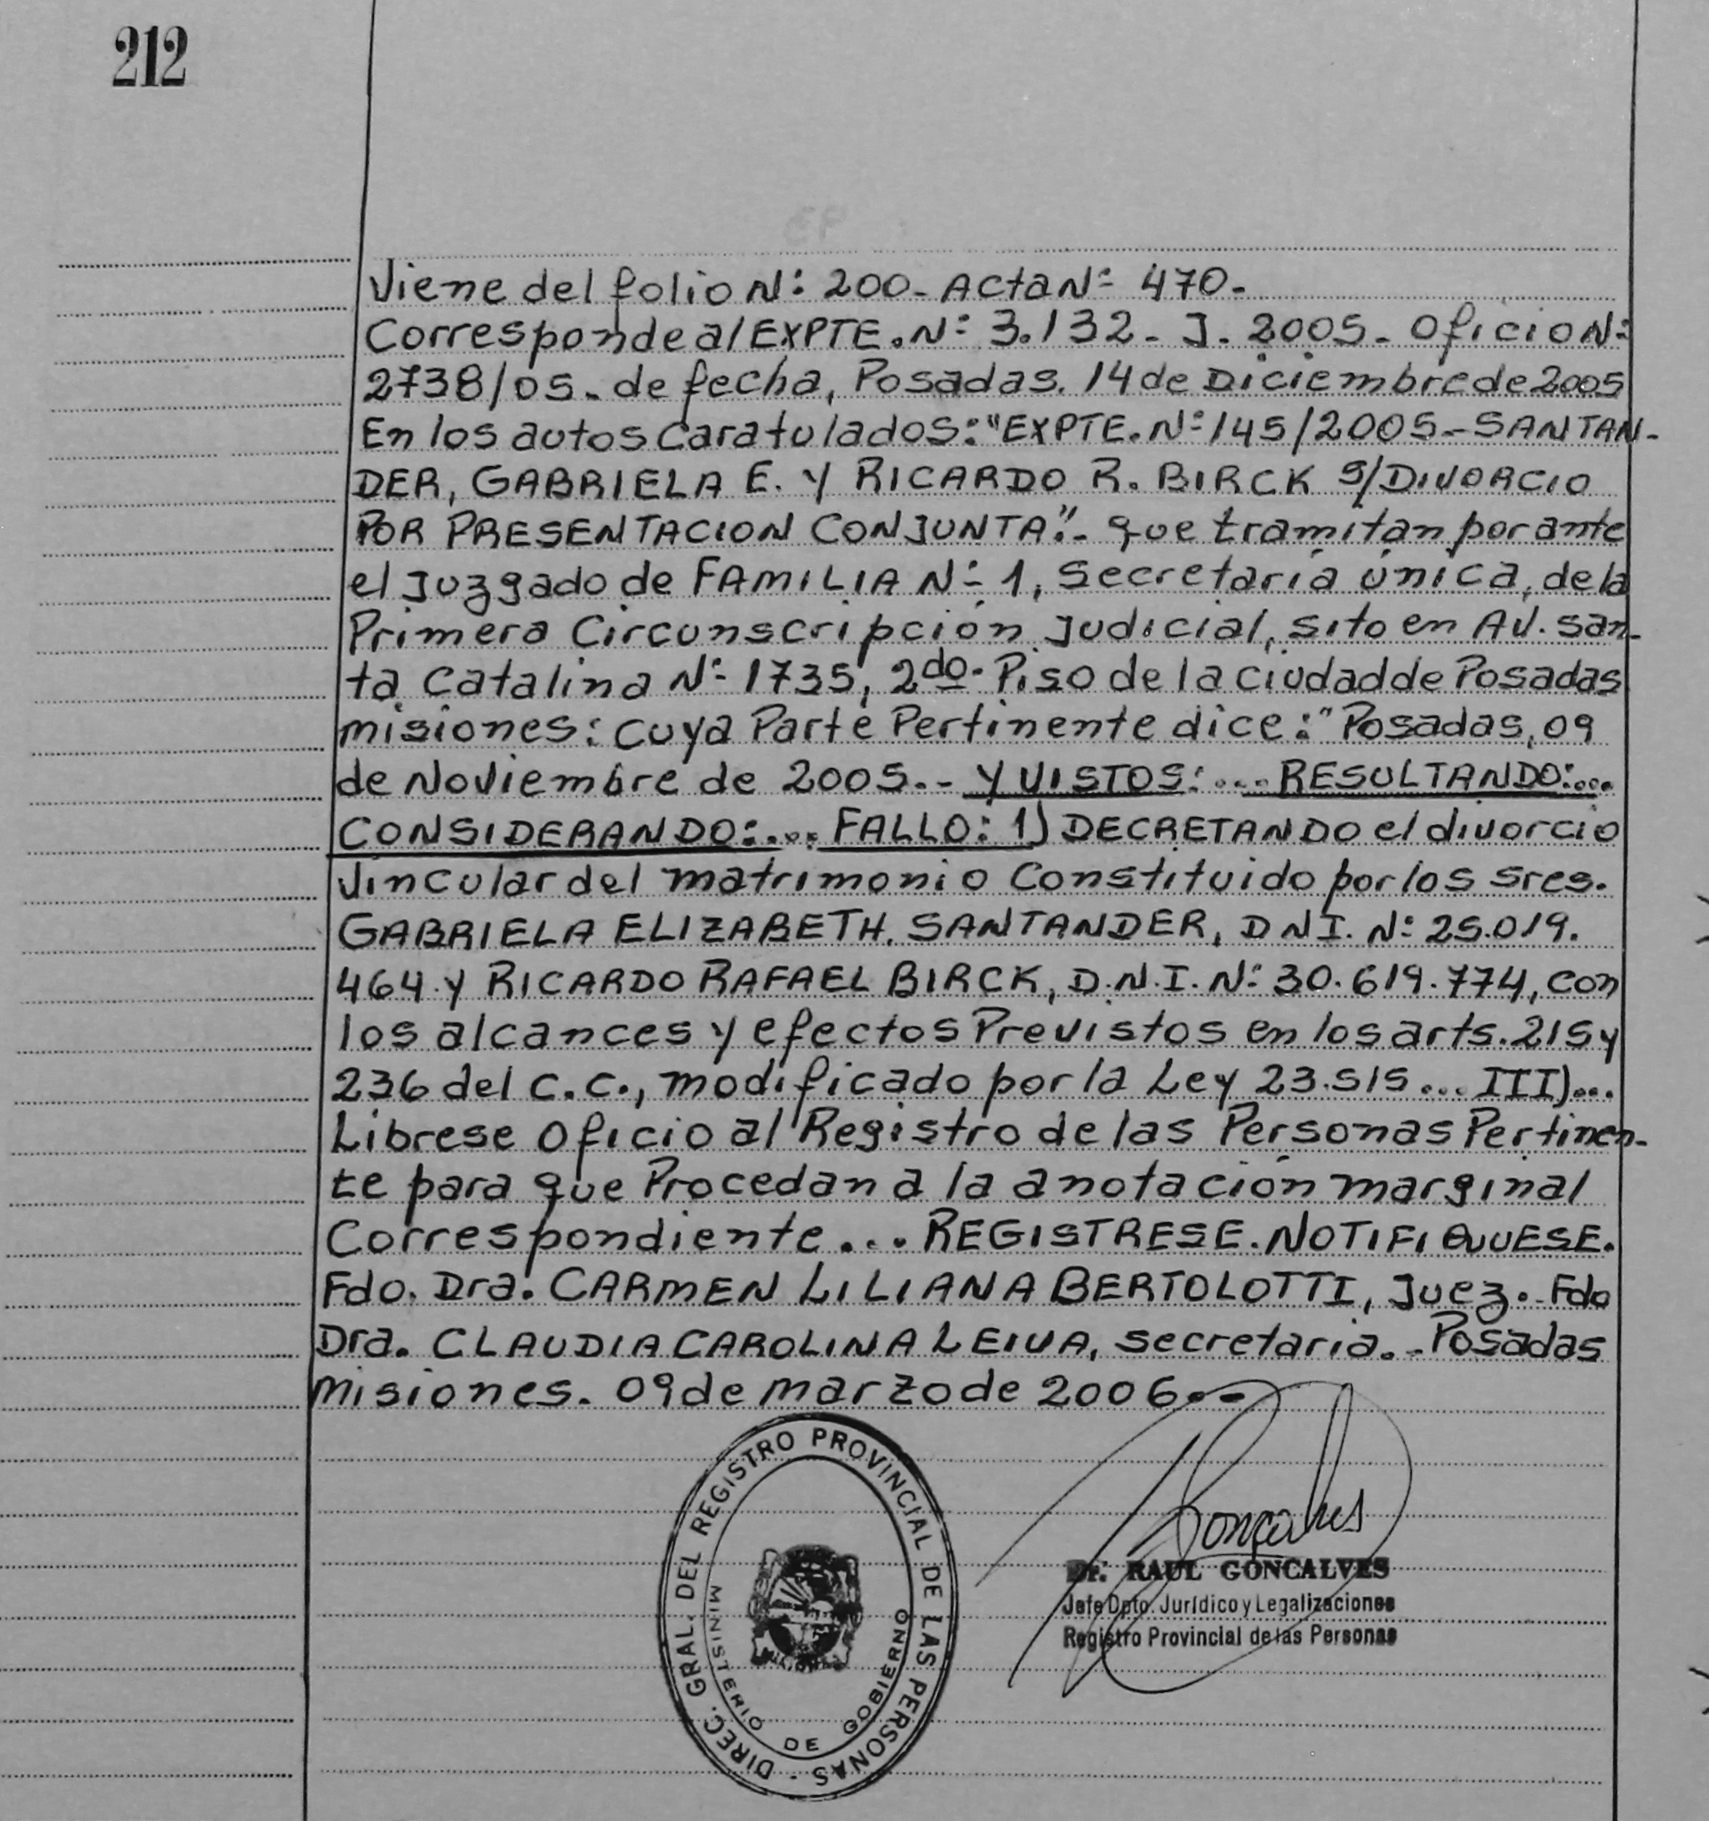 212
Viene del folio N: 200- Acta N: 470-
Corresponde al EXPTE. N: 3.132- J. 2005- Oficio N:
2738/05- de fecha, Posadas. 14 de Diciembre de 2005
En los autos Caratulados: "EXPTE. N: 145/2005- SANTAN-
DER, GABRIELA E. Y RICARDO R. BIRCK S/DIVORCIO
POR PRESENTACION CONJUNTA".- que tramitan por ante
el Juzgado de FAMILIA N: 1, Secretaría única, de la
Primera Circunscripción Judicial, sito en AV. San-
ta Catalina N: 1735, 2do. Piso de la ciudad de Posadas
misiones: Cuya Parte Pertinente dice: "Posadas, 09
de Noviembre de 2005.- Y VISTOS:... RESULTANDO:...
CONSIDERANDO:... FALLO: 1) DECRETANDO el divorcio
Vincular del matrimonio Constituido por los sres.
GABRIELA ELIZABETH. SANTANDER, DNI. N: 25.019.
464 y RICARDO RAFAEL BIRCK, D.N.I. N: 30.619.774, con
los alcances y efectos Previstos en los arts. 215 y
236 del C.C., modificado por la Ley 23.515... III)...
Librese Oficio al Registro de las Personas Pertinen-
te para que Procedan a la anotación marginal
Correspondiente... REGISTRESE. NOTIFIQUUESE.
Fdo. Dra. CARMEN LILIANA BERTOLOTTI, Juez.- Fdo
Dra. CLAUDIA CAROLINA LEIVA, secretaria.- Posadas
misiones. 09 de marzo de 2006.--
DIREC. GRAL. DEL REGISTRO PROVINCIAL DE LAS PERSONAS -
MINISTERIO DE GOBIERNO
Gonçalves
Dr. RAUL GONCALVES
Jefe Dpto. Jurídico y Legalizaciones
Registro Provincial de las Personas